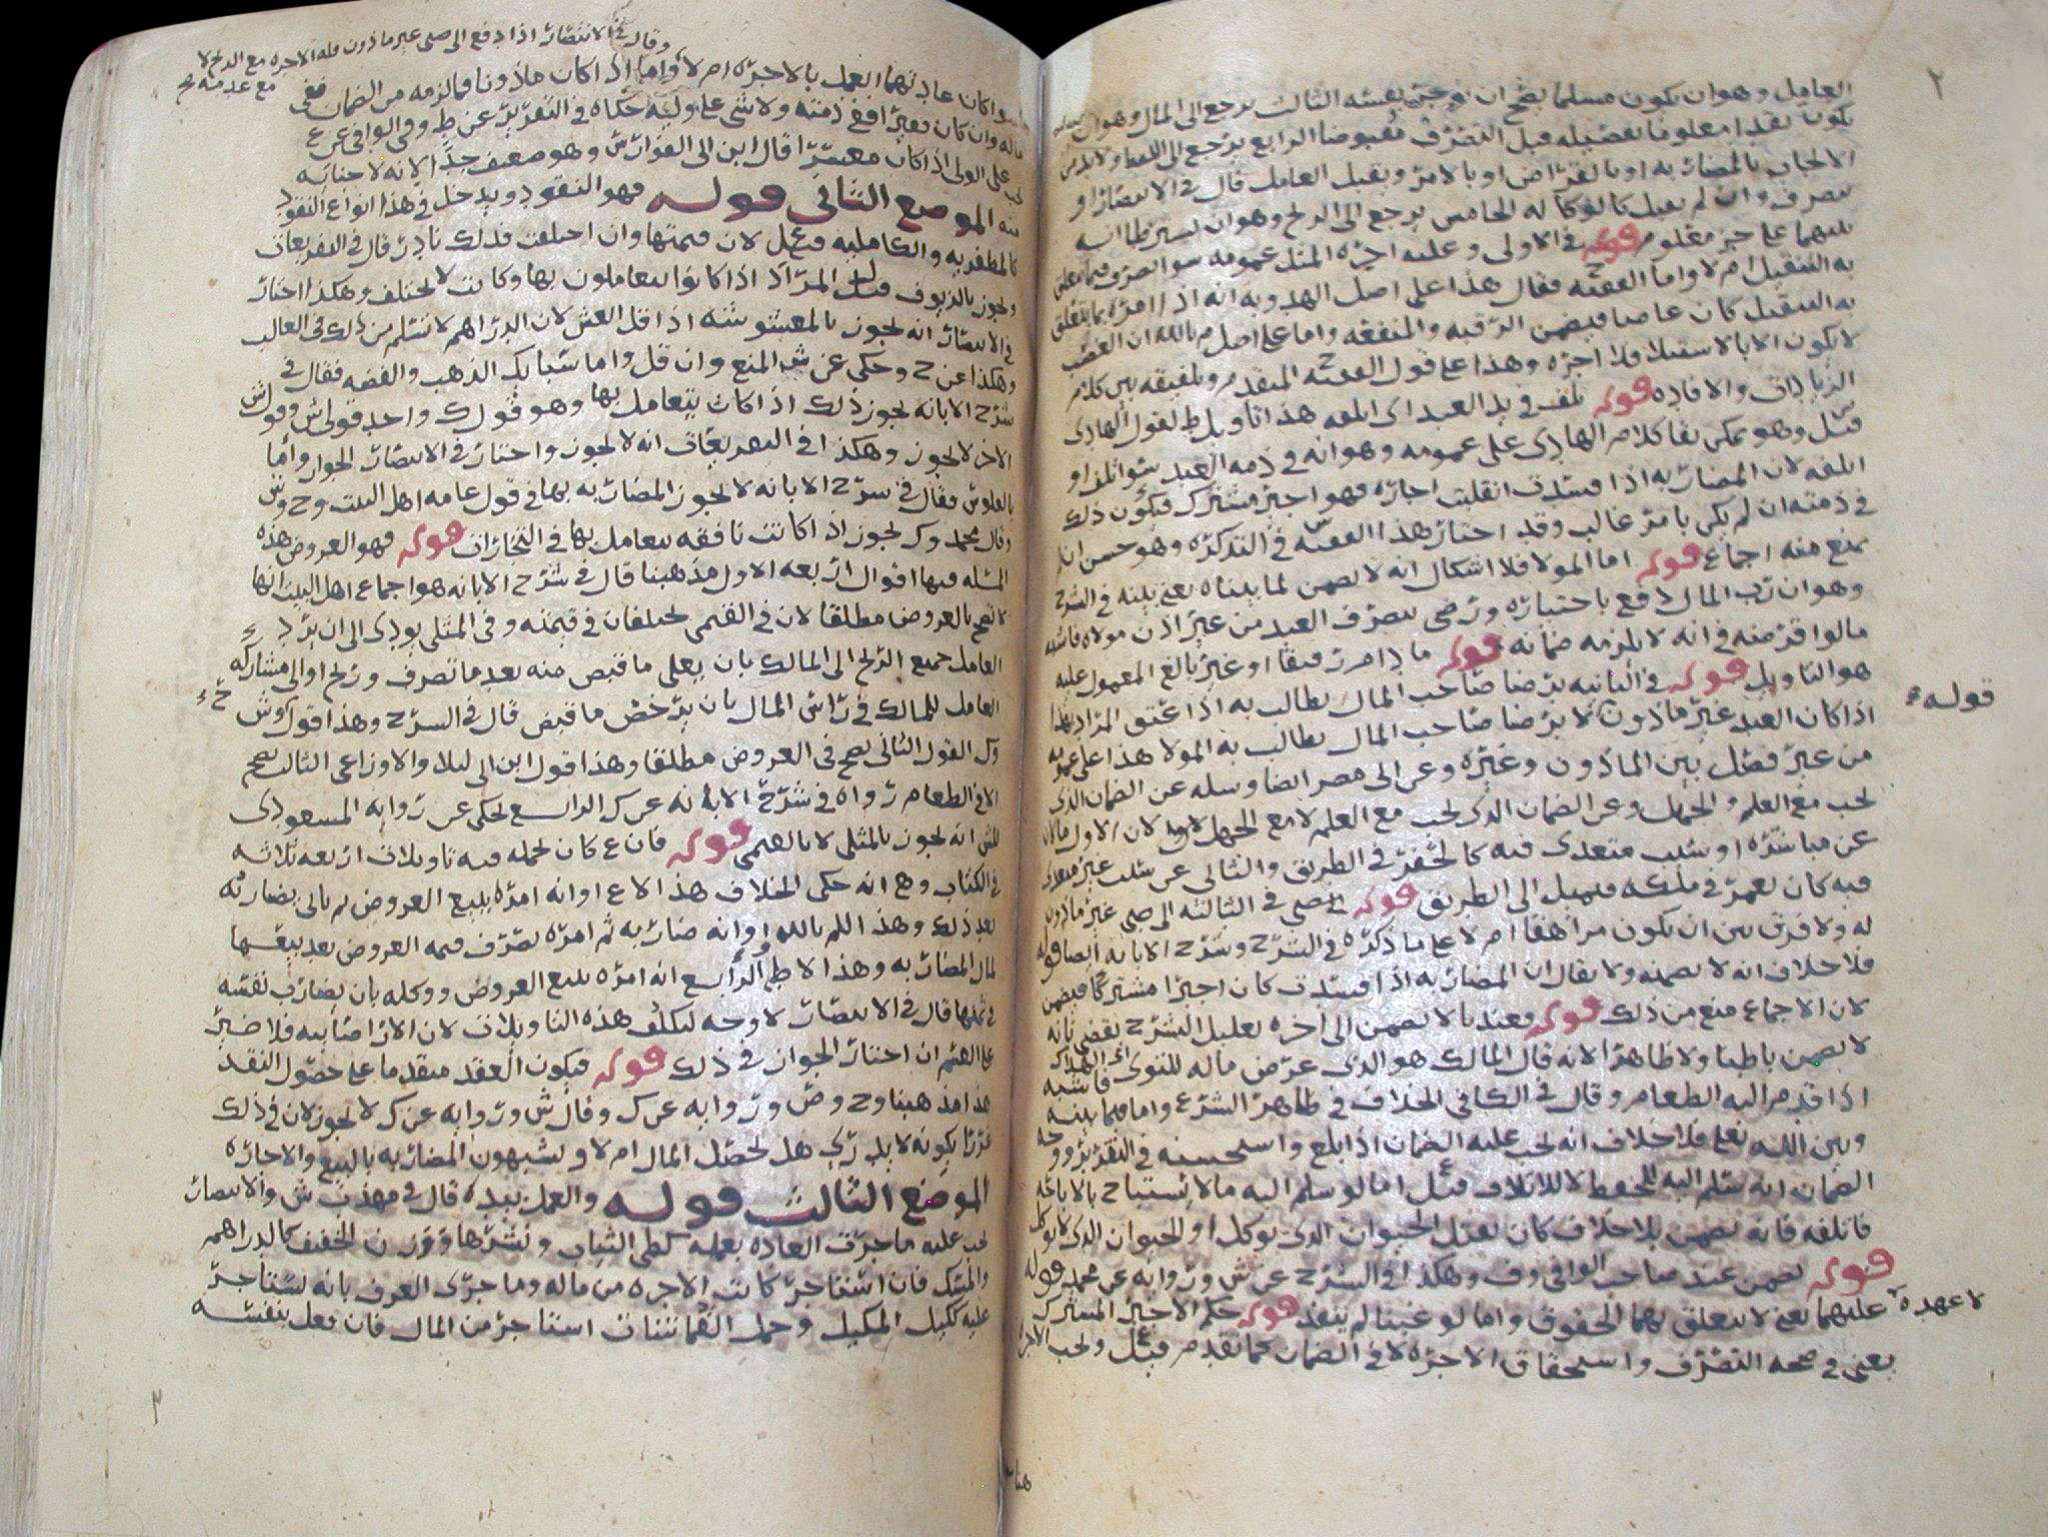 ٢
العامل وهو ان يكون مسلما يصح ان يوجر نفسه الثالث يرجع الى المال وهو ان
يكون نقدا معلوما تفصيله قبل التصرف مقبوضا الرابع يرجع الى اللفظ ولابد من
الايجاب بالمضاربه او بالقراض او بالامر ويقبل العامل قال في الانتصار او
يتصرف وان لم يقبل كالوكاله الخامس يرجع الى الربح وهو ان يشترطا انه
بينهما على جز معلوم قوله في الاولى وعليه اجره المثل عمومه سوا
به التثقيل ام لا واما الفقيه ح فقال هذا على اصل الهدويه انه اذا امره بما يتعلق
به التثقيل كان غاصبا فيضمن الرقبه والمنفعه واما على اصل م بالله ان الغصب
لا يكون الا بالاستيلا فلا اجره وهذا على قول الفقيه ح المتقدم وتلفيقه بين كلام
الزيادات والافاده قوله تلف في يد العبد اي اتلفه هذا تاويل ط لقول الهادي
قيل وهو ممكن بقا كلام الهادي على عمومه وهو انه في ذمه العبد سوا تلف او
اتلفه لان المضاربه اذا فسدت انقلبت اجاره فهو اجير مشترك فيكون ذلك
في ذمته ان لم يكن بامر غالب وقد اختار هذا الفقيه س في التذكره وهو حسن ان لم
يمنع منه اجماع قوله اما المولا فلا اشكال انه لا يضمن لما بيناه يعني بينه في الشرح
وهو ان رب المال دفع باختياره ورضي بتصرف العبد من غير اذن مولاه فاشبه
ما لو اقرضه في انه لا يلزمه ضمانه قوله ما دام رقيقا او غير بالغ المعمول عليه
هو التاويل قوله في الثانيه برضا صاحب المال يطالب به اذا عتق المراد بهذا
قوله
اذا كان العبد غير ماذون لا برضا صاحب المال يطالب به المولا هذا على عمومه
من غير فصل بين الماذون وغيره
يجب مع العلم والجهل وعن الضمان الذي يجب مع العلم لا مع الجهل لان الاول
عن مباشره او سبب متعدي فيه كالحفر في الطريق والثاني عن سبب غير متعدي
فيه كان يعمر في ملكه فيميل الى الطريق قوله الى صبي في الثالثه الى صبي غير ماذون
له ولا فرق بين ان يكون مراهقا ام لا على ما ذكره في الشرح وشرح الابانه ايضا قوله
فلا خلاف انه لا يضمنه ولا يقال ان المضاربه اذا فسدت كان اجيرا مشتركا فيضمن
لان الاجماع منع من ذلك قوله فعندنا لا يضمن الى اخره تعليل الشرح يقضي بانه
لا يضمن باطنا ولا ظاهرا لانه قال المالك هو الذي عرض ماله للتوى فاشبه
اذا قدم اليه الطعام وقال في الكافي الخلاف في ظاهر الشرع واما فيما بينه
وبين الله تعالى فلا خلاف انه يجب عليه الضمان اذا بلغ واستحسنه في التقرير ووجه
الضمان انه سلم اليه للحفظ لا للاتلاف قيل ع اما لو سلم اليه ما لا يستباح بالاباحه
فاتلفه فانه يضمن بلا خلاف كان يقتل الحيوان الذي يوكل او الحيوان الذي لا يوكل
قوله يضمن عند صاحب الوافي وف وهكذا في الشرح عن ش وروايه عن محمد قوله
لا عهده عليهما يعني لا يتعلق بهما الحقوق واما لو غبنا لم ينفذ قوله حكم الاجير المشترك
يعني في صحه التصرف واستحقاق الاجره لا في الضمان كما تقدم قيل ع ويجب الاجر
وقال في الانتصار اذا دفع الى صبي غير ماذون فله الاجره مع الربح لا
مع عدمه صح
سوا كان عادتهما العمل بالاجره ام لا واما اذا كان ماذونا فما لزمه من الضمان ففي
ماله وان كان فقيرا ففي ذمته ولا شي على وليه حكاه في التقرير عن ط وفي الوافي عن ع
يجب على الولي اذا كان معسرا قال ابن ابي الفوارس وهو ضعيف جدا لانه لا جنايه
منه الموضع الثاني قوله فهو النقود ويدخل في هذا انواع النقود
كالمظفريه والكامليه قيل ع لان قيمتها وان اختلفت فذلك نادر قال في التفريعات
ويجوز بالزيوف قيل ل المراد اذا كانوا يتعاملون بها وكانت لا تختلف وهكذا اختار
في الانتصار انه يجوز بالمغشوشه اذا قل الغش لان الدراهم لا تسلم من ذلك في الغالب
وهكذا عن ح وحكي عن ش المنع وان قل واما سبائك الذهب والفضه فقال في
شرح الابانه يجوز ذلك اذا كان يتعامل بها وهو قول ك واحد قولي ش وقول ش
الاخر لا يجوز وهكذا في التفريعات انه لا يجوز واختار في الانتصار الجواز واما
بالفلوس فقال في شرح الابانه لا تجوز المضاربه بها في قول عامه اهل البيت وح وش
وقال محمد وك يجوز اذا كانت نافقه يتعامل بها في التجارات قوله فهو العروض هذه
المسئله فيها اقوال اربعه الاول مذهبنا قال في شرح الابانه هو اجماع اهل البيت انها
لا تصح بالعروض مطلقا لان في القيمي يختلفان في قيمته وفي المثلي يودي الى ان يرد
العامل جميع الربح الى المالك بان يغلى ما قبض منه بعد ما تصرف وربح او الى مشاركه
العامل للمالك في راس المال بان يرخص ما قبض قال في الشرح وهذا قول ح وش
وك القول الثاني يصح في العروض مطلقا وهذا قول ابن ابي ليلا والاوزاعي الثالث يصح
الا في الطعام رواه في شرح الابانه عن ك الرابع يحكي عن روايه المسعودي
للش انه يجوز بالمثلي لا بالقيمي قوله فان ع كان يحمله فيه تاويلات اربعه ثلاثه
في الكتاب وهي انه حكى الخلاف هذا لا ع او انه امره ببيع العروض ثم ياتي يضاربه
بعد ذلك وهذا للم بالله او انه ضاربه ثم امره بصرف قيمه العروض بعد بيعها
لمال المضاربه وهذا لا ط الرابع انه امره ببيع العروض ووكله بان يضارب نفسه
في ثمنها قال في الانتصار لا وجه لتكلف هذه التاويلات لان الارا صائبه فلا ضير
على الهيثم ان اختار الجواز في ذلك قوله فيكون العقد متقدما على حصول النقد
هذا مذهبنا وح وص وروايه عن ك وقال ش وروايه عن ك لا يجوز لان في ذلك
غررا بكونه لا يدري هل يحصل المال ام لا ويشبهون المضاربه بالبيع والاجاره
الموضع الثالث قوله والعمل بيده قال في مهذب ش والانتصار
يجب عليه ما جرت العاده بعمله كطي الثياب ونشرها ووزن الخفيف كالدراهم
والمسك فان استاجر كانت الاجره من ماله وما جرى العرف بانه يستاجر
عليه ككيل المكيل وحمل القماشات استاجر من المال فان فعل بنفسه